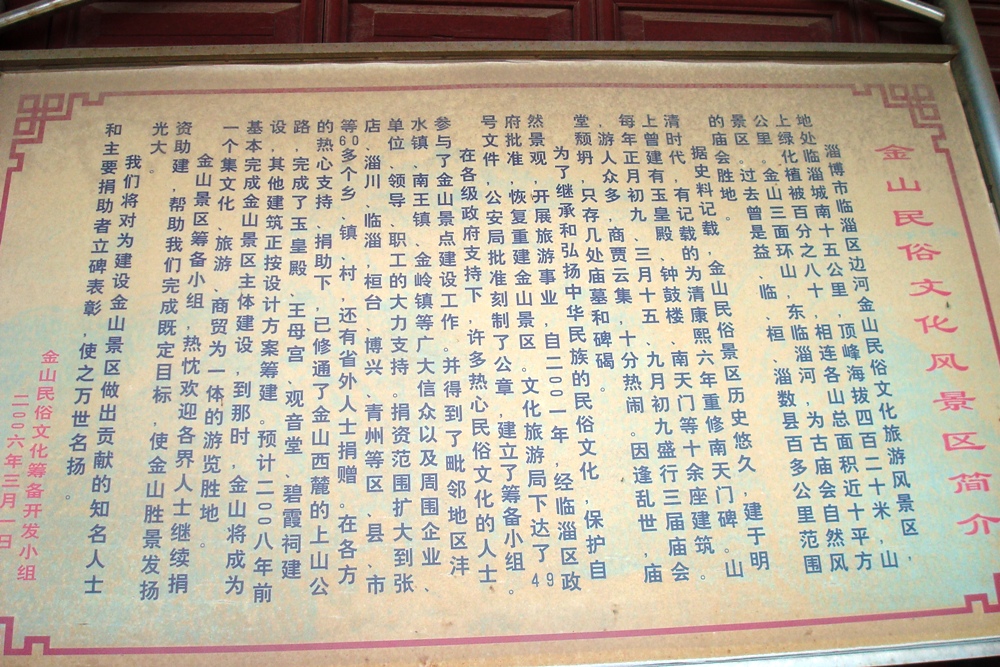 金山民俗文化风景区简介
淄博市临淄区边河金山民俗文化旅游风景区，
地处临淄城南十五公里，顶峰海拔四百二十米，山
上绿化植被百分之八十，相连各山总面积近十平方
公里。金山三面环山，东临淄河，为古庙会自然风
景区。过去曾是益、临、桓、淄数县百多公里范围
的庙会胜地。
据史料记载，金山民俗景区历史悠久，建于明
清时代，有记载的为清康熙六年重修南天门碑。山
上曾建有玉皇殿、钟鼓楼、南天门等十余座建筑。
每年正月初九、三月十五、九月初九盛行三届庙会
，游人众多，商贾云集，十分热闹。因逢乱世，庙
堂颓坍，只存几处庙墓和碑碣。
为了继承和弘扬中华民族的民俗文化，保护自
然景观，开展旅游事业，自二00一年，经临淄区政
府批准，恢复重建金山景区。文化旅游局下达了49
号文件，公安局批准刻制了公章，建立了筹备小组。
在各级政府支持下，许多热心民俗文化的人士
参与了金山景点建设工作。并得到了毗邻地区沣
水镇、南王镇、金岭镇等广大信众以及周围企业、
单位、领导、职工的大力支持。捐资范围扩大到张
店、淄川、临淄、桓台、博兴、青州等区、县、市
等60多个乡、镇、村，还有省外人士捐赠。在各方
的热心支持、捐助下，已修通了金山西麓的上山公
路，完成了玉皇殿、王母宫、观音堂、碧霞祠建
设，其他建筑正按设计方案筹建。预计二00八年前
基本完成金山景区主体建设，到那时，金山将成为
一个集文化、旅游、商贸为一体的游览胜地。
金山景区筹备小组，热忱欢迎各界人士继续捐
资助建，帮助我们完成既定目标，使金山胜景发扬
光大。
我们将对为建设金山景区做出贡献的知名人士
和主要捐助者立碑表彰，使之万世名扬。
金山民俗文化筹备开发小组
二00六年三月一日